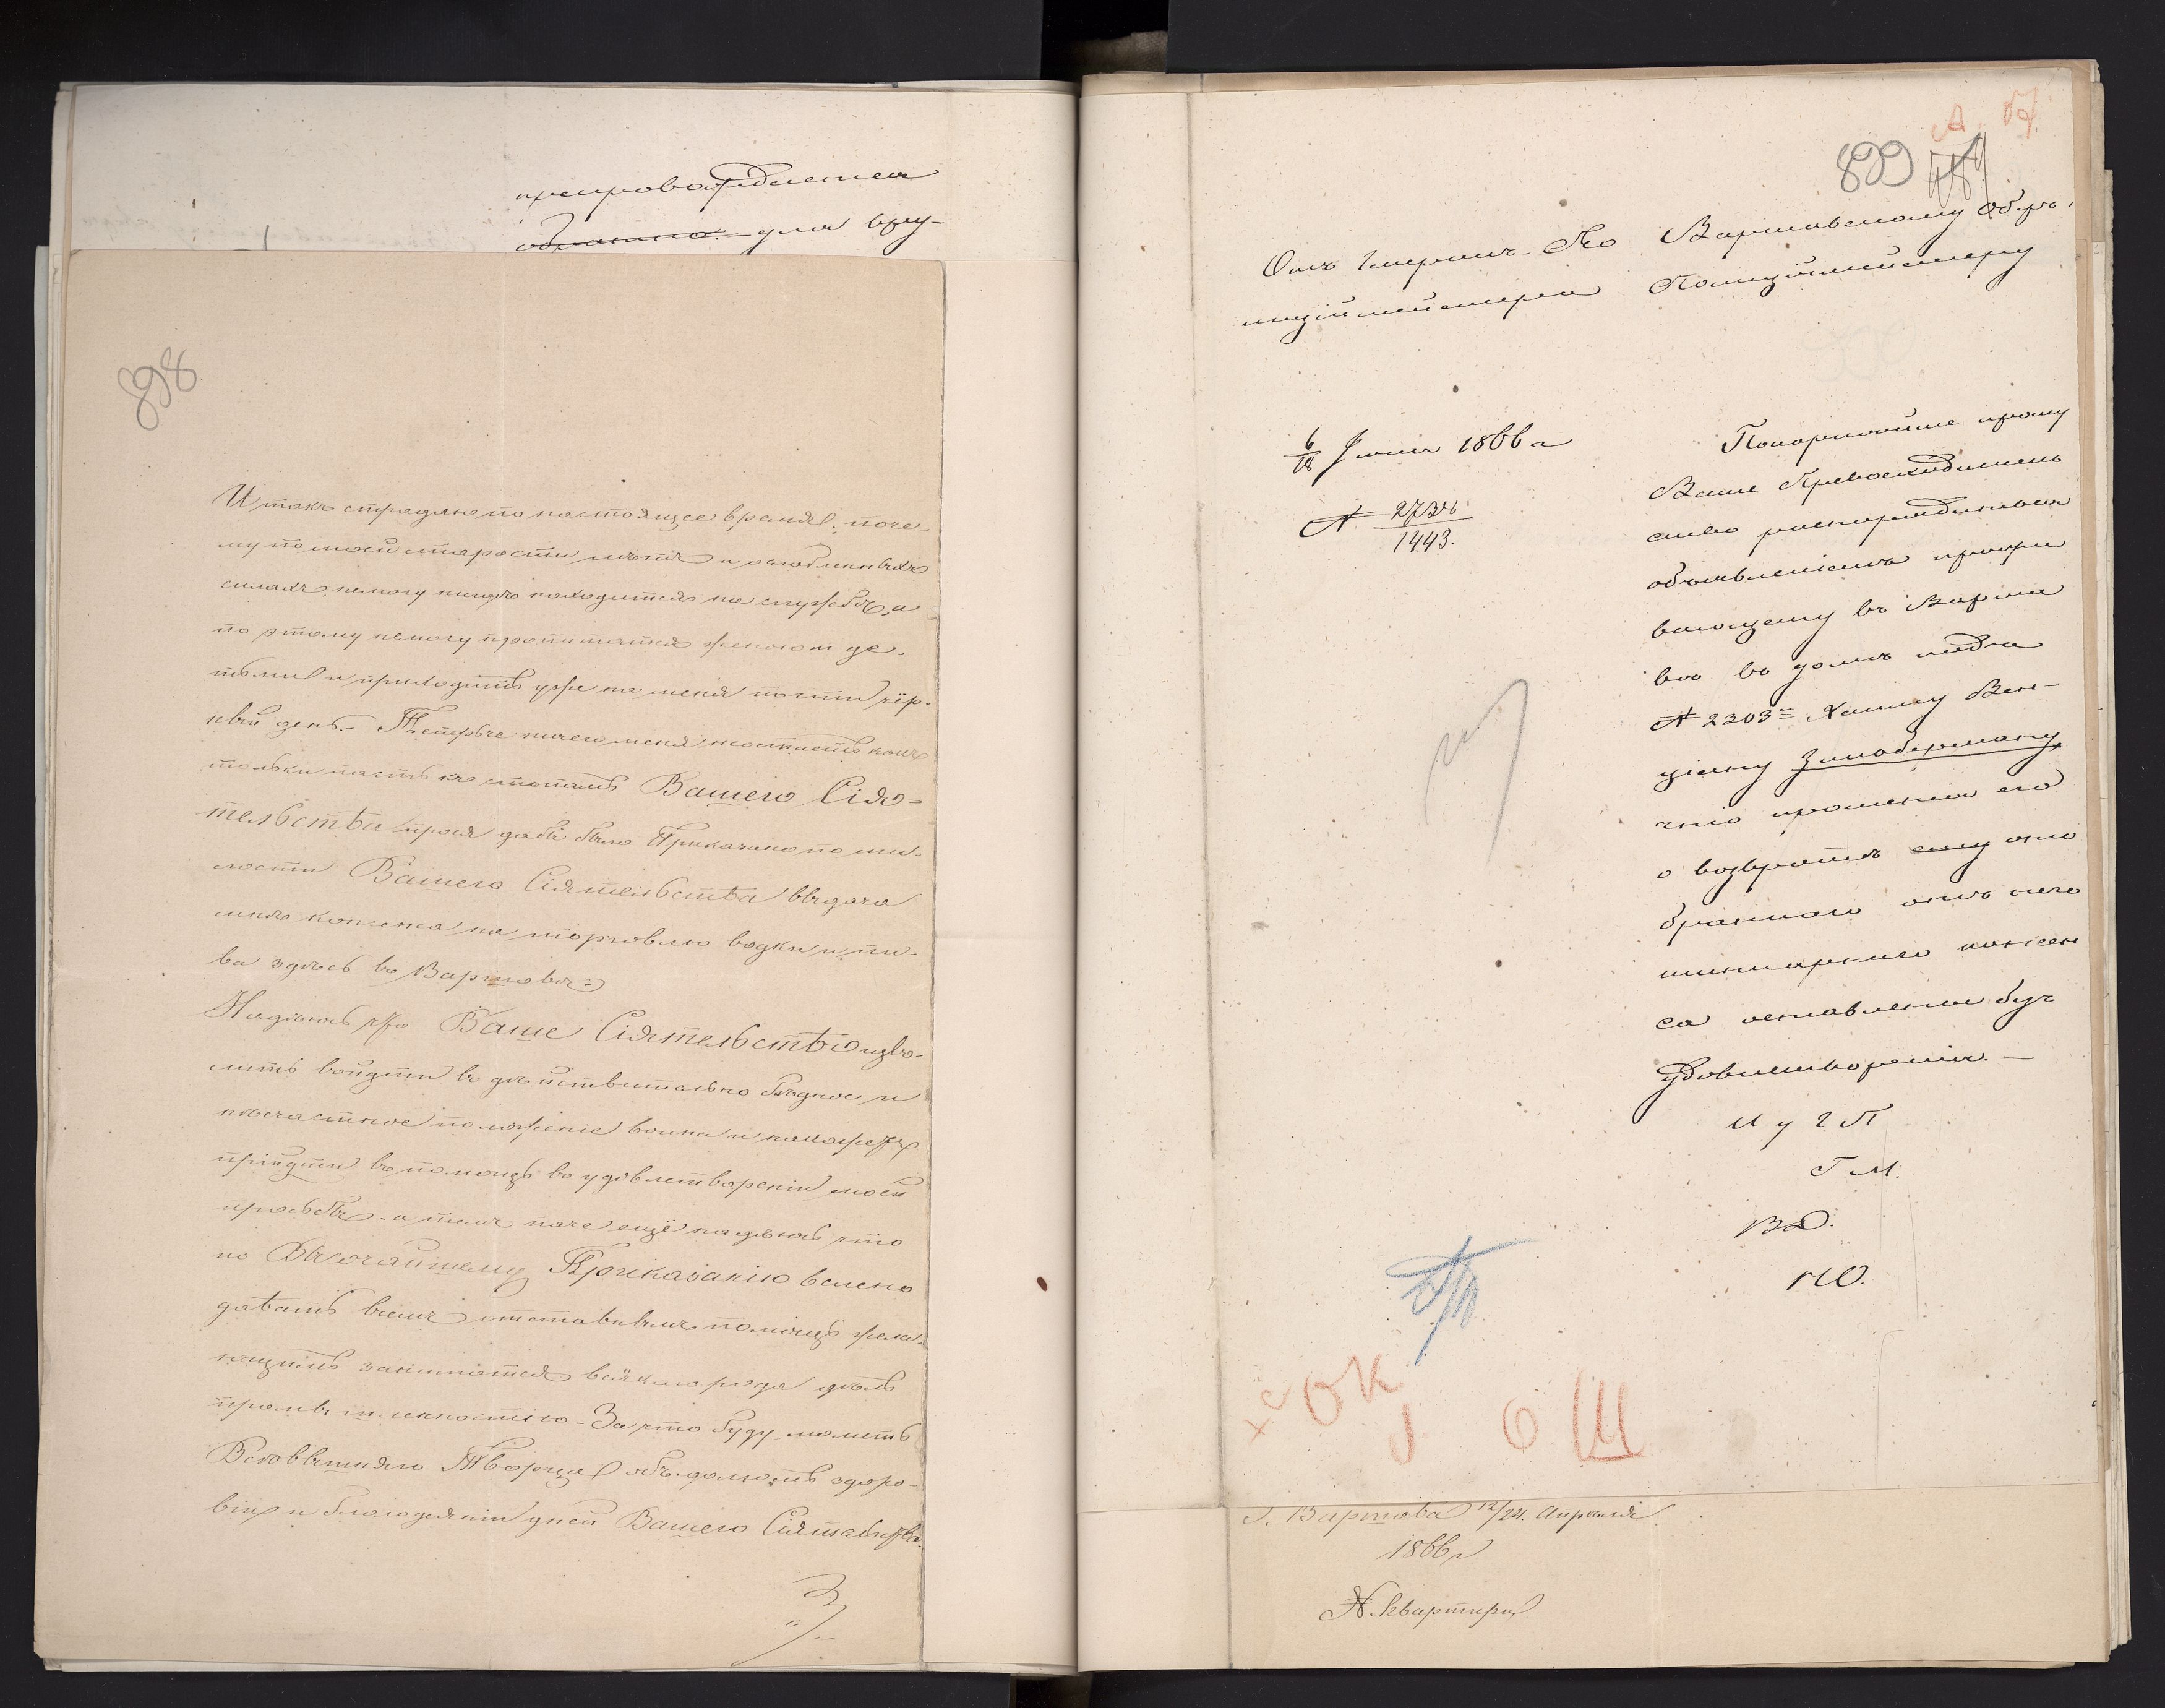 препровождается
обратно для вру-
898
И такъ страдаю по настоящее время. поче-
му по моей старости лѣтъ и ослабленныхъ
силахъ, немогу нигдѣ находится на службѣ, а
по этому немогу пропитатся женою и де-
тьми и приходитъ уже на меня почти чёр-
ный день.- Теперьче ничего меня неостаетъ какъ
только пасть къ стопамъ Вашего Сія-
тельства прося дабы было Приказано по ми-
лости Вашего Сіятельства выдача
мнѣ консенса на торговлю водки и пи-
ва здѣсь въ Варшавѣ.
Надѣюсь что Ваше Сіятельство изво-
литъ войдти въ дѣйствительно бѣдное и
несчастное положеніе воина и
прійдти въ помощь въ удовлетвореніи моей
просьбѣ. а темъ паче ещё надѣюсь что
по Высочайшему Приказанію велено
давать всемъ отставнымъ помощь жела-
ющимъ заниматся всякаго рода дѣлъ
промышленностію- За что буду молить
Всевышняго Творца объ здоро-
віи и благодѣяніи дней Вашего Сіятельства.
899
Отъ Генералъ-По
лиціймейстера
Варшавскому Оберъ
Полиціймейстеру
6/18 Іюня 1866 г
№ 2738/1443.
Покорнѣйше прошу
Ваше Превосходитель
ство распорядиться
объявленіемъ прожи
вающему въ Варша
вѣ въ домѣ подъ
№ 2303= Хаиму Вен-
гіану Зильберману
что прошенія его
о возвратѣ ему ото
браннаго отъ него
шинкарнаго консен
са оставлены безъ
удовлетворенія.-
И у Г П
Г М.
ВД.
НО.
ОК
Ш
г. Варшава 12/24. Апрѣля
1866 г
№. Квартиры